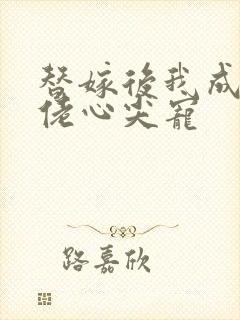 替嫁後我成
佬心尖寵
路嘉欣